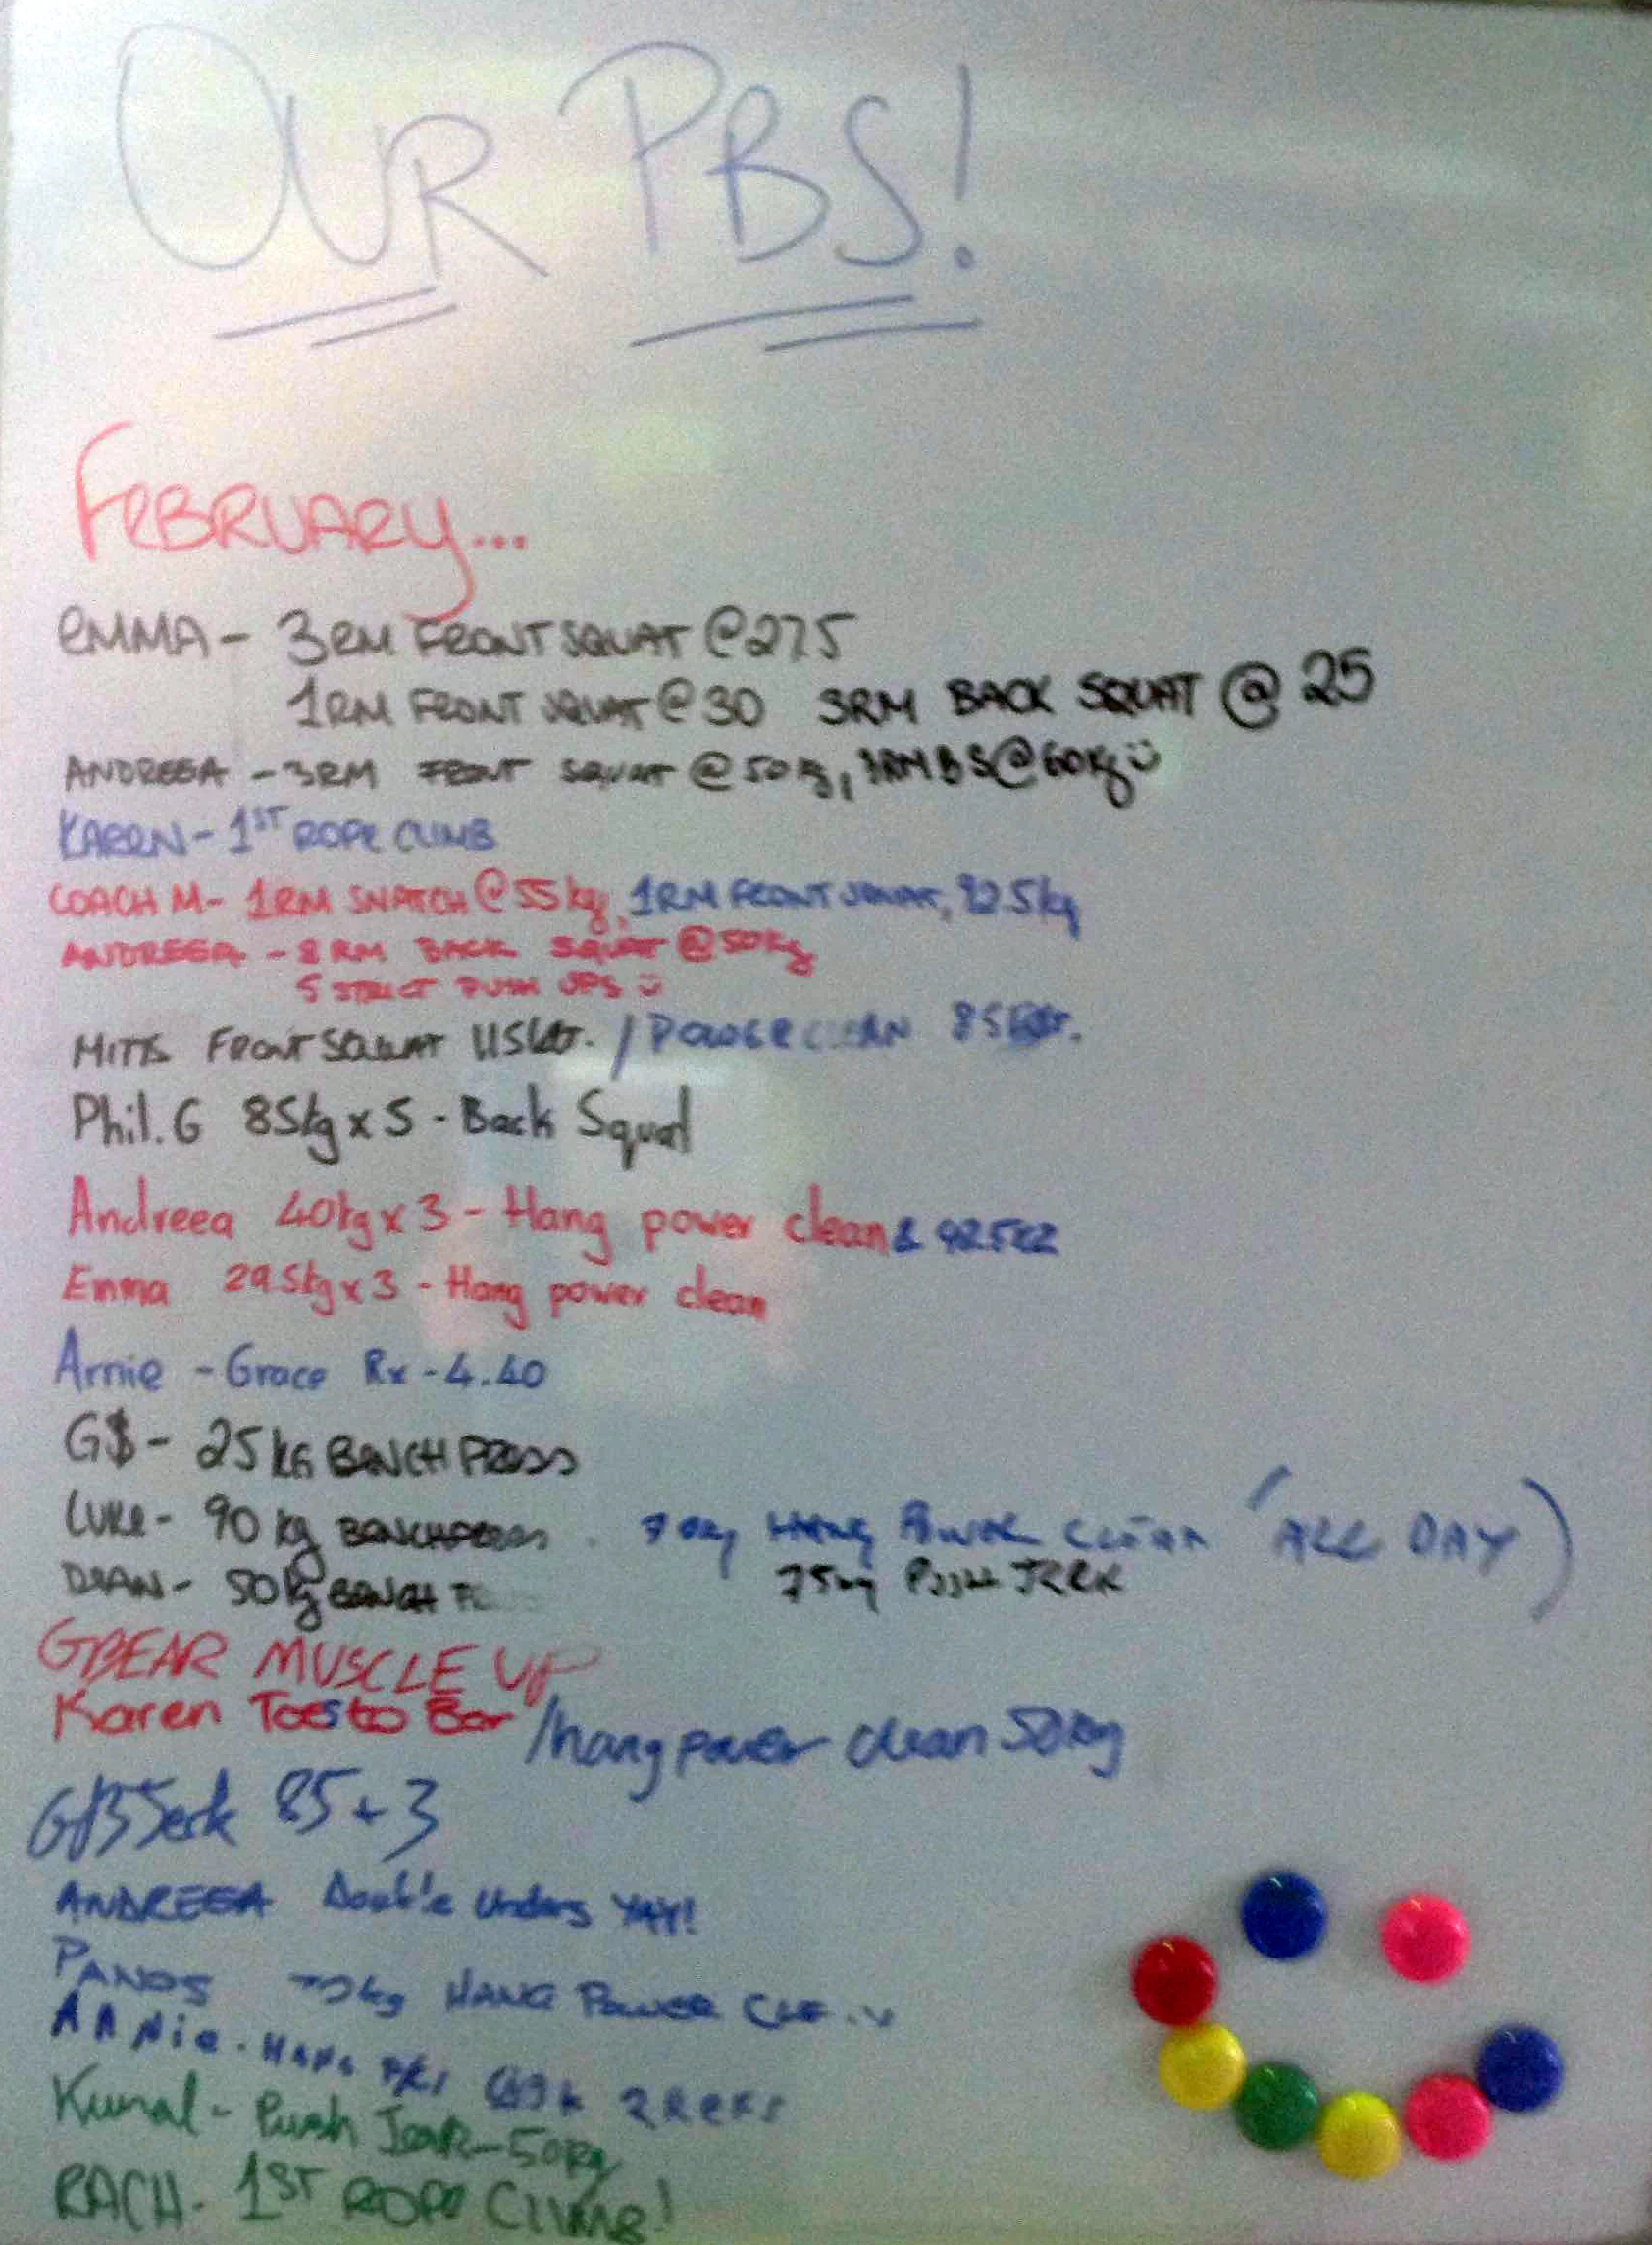 OUR PBS!
FEBRUARY...
EMMA - 3RM FRONT SQUAT @ 27.5
1RM FRONT SQUAT @ 30 3RM BACK SQUAT @ 25
ANDREEA - 3RM FRONT SQUAT @ 50kg, 3RM BS @ 60kg
KAREN - 1ST ROPE CLIMB
COACH M - 1RM SNATCH @ 55kg, 1RM FRONT SQUAT, 82.5kg
ANDREEA - 8RM BACK SQUAT @ 50kg
5 STRICT PUSH UPS
FRONT SQUAT / POWER CLEAN
Phil.G 85kg x 5 - Back Squat
Andreea 40kg x 3 - Hang power clean &
Emma 29.5kg x 3 - Hang power clean
Arnie - Grace Rx - 4.40
G$ - 25kG BENCH PRESS
LUKE - 90kg BENCHPRESS. 70kg HANG POWER CLEAN (ALL DAY)
DEAN - 50kg BENCH 75kg PUSH JERK
GBEAR MUSCLE UP
Karen Toes to Bar / hang power clean 50kg
GB Jerk 85 + 3
ANDREEA Double Unders YAY!
PANOS HANG POWER
HANG
Kunal - Push Jerk - 50kg
RACH - 1ST ROPE CLIMB!